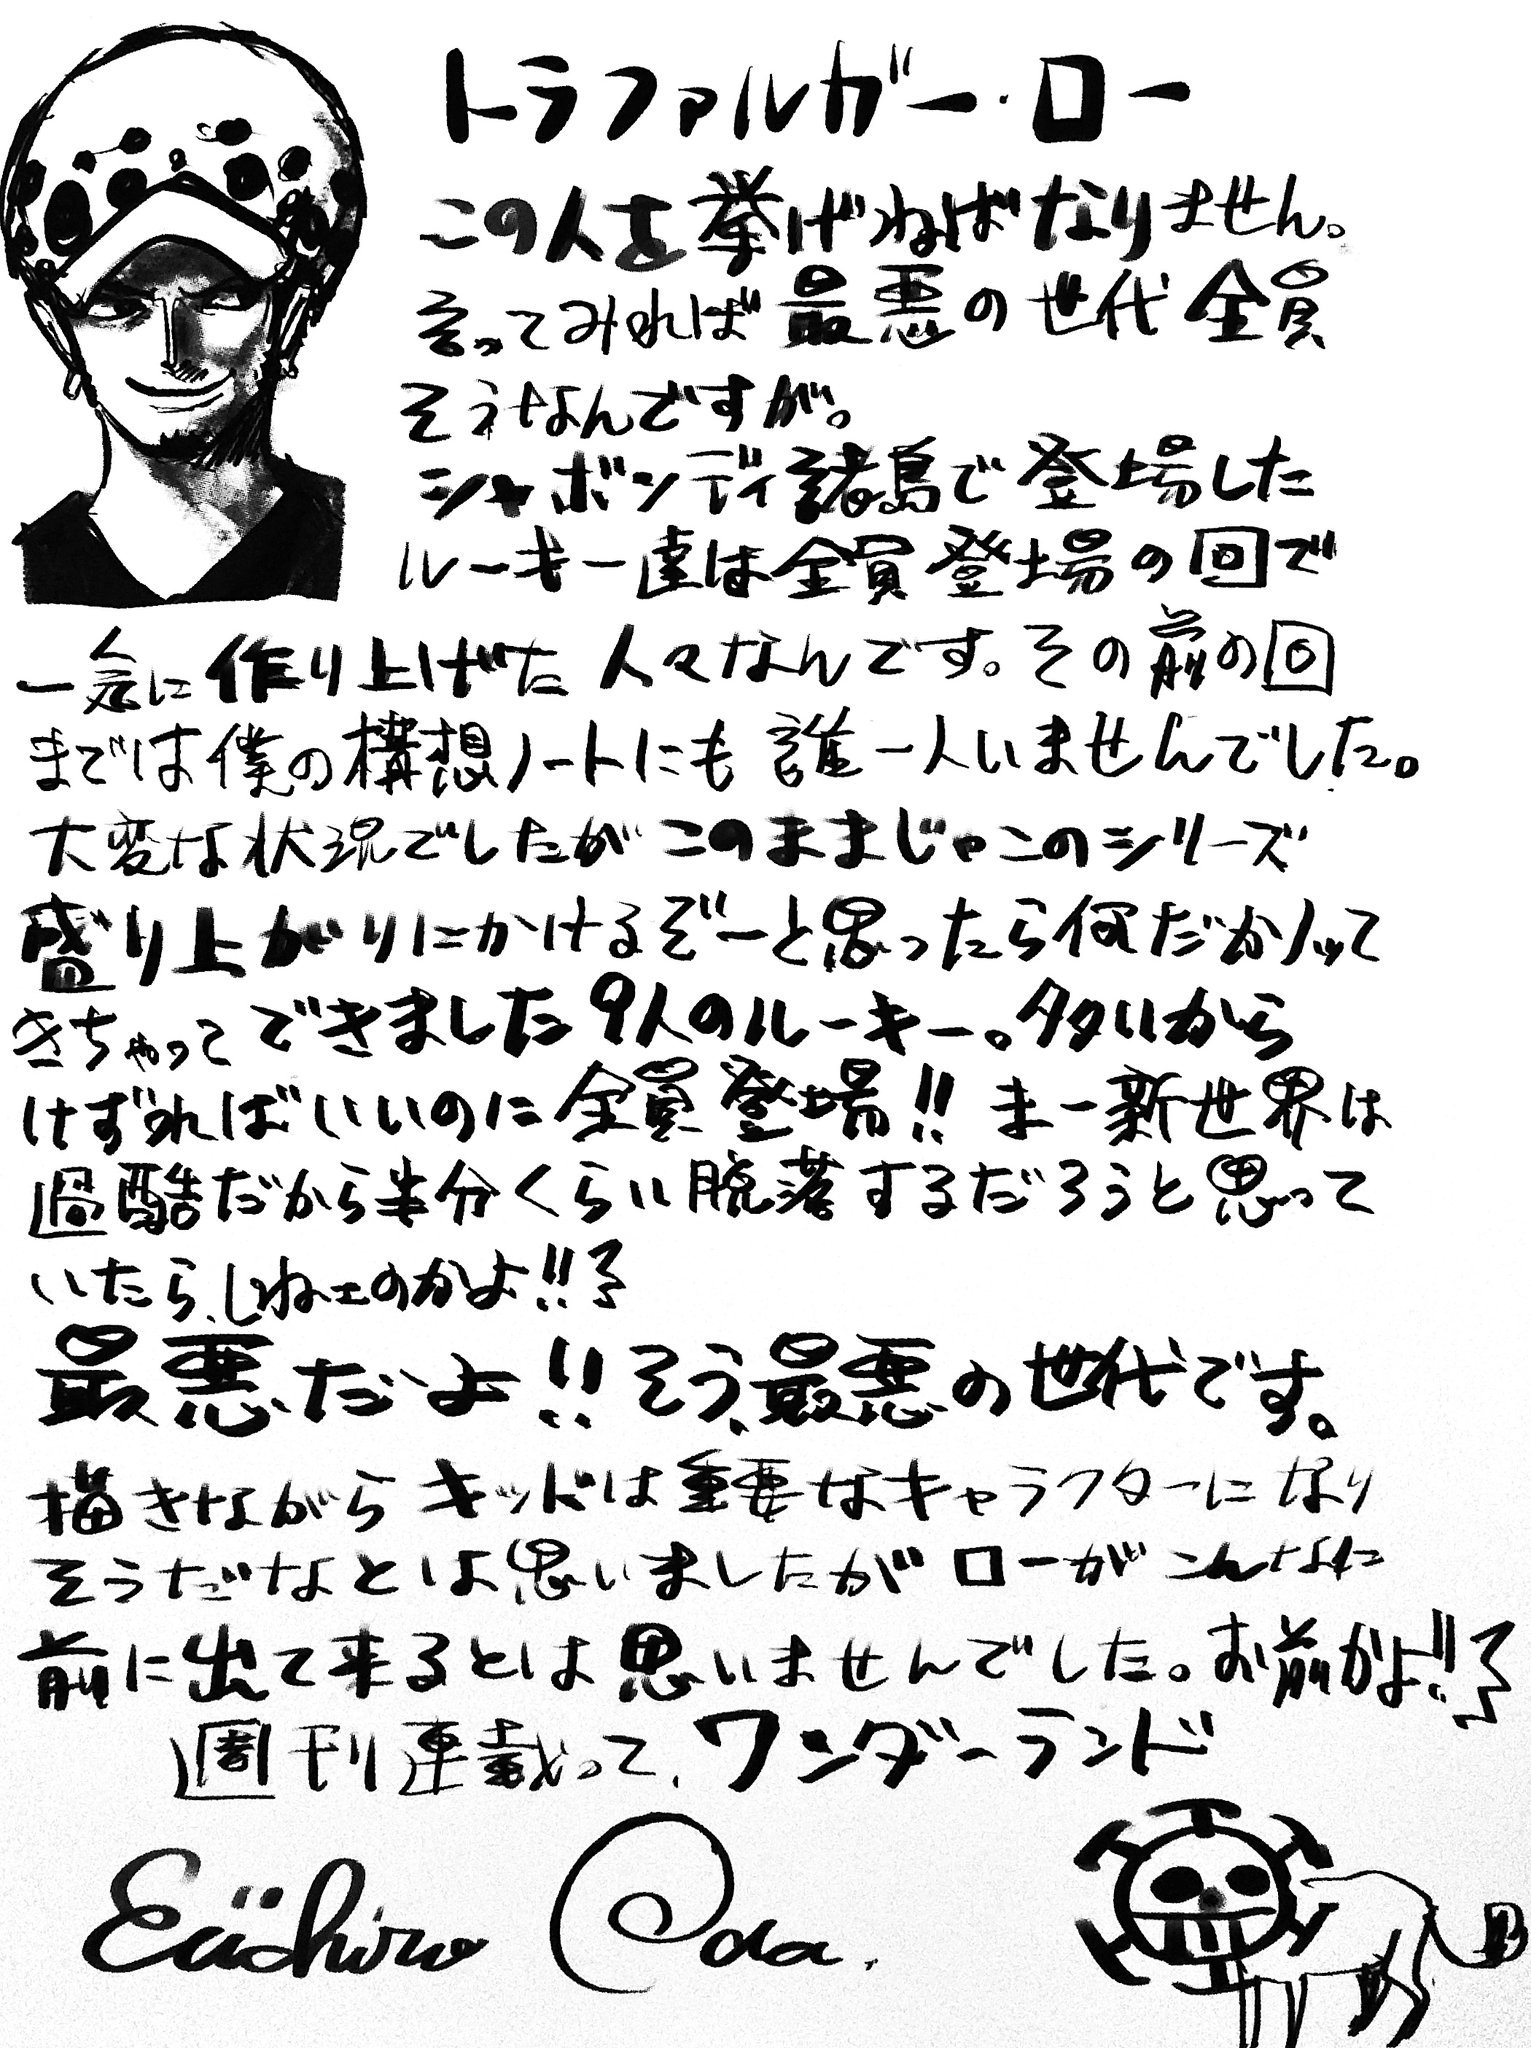 トラファルガー・ロー
この人を挙げねばなりません。
言ってみれば最悪の世代全員
そうなんですが。
シャボンディ諸島で登場した
ルーキー達は全員登場の回で
一気に作り上げた人々なんです。その前の回
までは僕の構想ノートにも誰一人いませんでした。
大変な状況でしたがこのままじゃこのシリーズ
盛り上がりにかけるぞーと思ったら何だかノッて
きちゃってできました9人のルーキー。多いから
けずればいいのに全員登場!! まー新世界は
過酷だから半分くらい脱落するだろうと思って
いたら、しねェのかよ!!
最悪だよ!!そう、最悪の世代です。
描きながらキッドは重要なキャラクターになり
そうだなとは思いましたがローがこんなに
前に出て来るとは思いませんでした。お前かよ!!
週刊連載って、ワンダーランド
Eiichiro Oda.